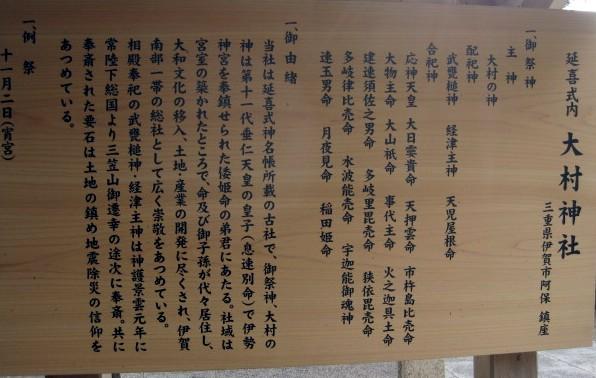 延喜式内 大村神社
三重県伊賀市阿保 鎮座
一、御祭神
主神
大村の神
配祀神
武甕槌神 経津主神 天児屋根命
合祀神
応神天皇 大日孁貴命 天押雲命 市杵島比売命
大物主命 大山祇命 事代主命 火之迦具土命
建速須佐之男命 多岐里毘売命 狭依毘売命
多岐律比売命 水波能売命 宇迦能御魂神
速玉男命 月夜見命 稲田姫命
一、御由緒
当社は延喜式神名帳所載の古社で、御祭神、大村の
神は第十一代垂仁天皇の皇子(息速別命)で伊勢
神宮を奉鎮せられた倭姫命の弟君にあたる。社域は
宮室の築かれたところで、命及び御子孫が代々居住し、
大和文化の移入、土地・産業の開発に尽くされ、伊賀
南部一帯の総社として広く崇敬をあつめている。
相殿奉祀の武甕槌神・経津主神は神護景雲元年に
常陸下総国より三笠山御遷幸の途次に奉斎。共に
奉斎された要石は土地の鎮め地震除災の信仰を
あつめている。
一、例祭
十一月二日(宵宮)